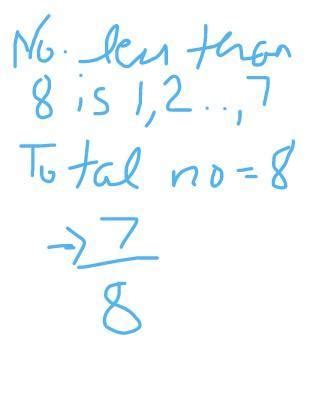 No. less than
8 is 1,2..,7
Total no=8
→ 7
8